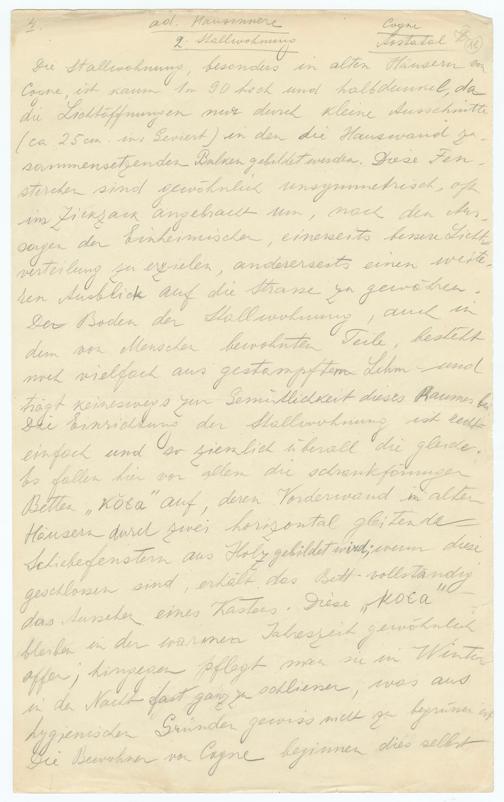 ad. Hausinnere
Cogne
Aostatal
16
2. Stallwohnung
Die Stallwohnung, besonders in alten Häusern von
Cogne, ist kaum 1m 90 hoch und halbdunkel, da
die Lichtöffnungen nur durch kleine Ausschnitte
(ca 25 cm. ins Geviert) in den die Hauswand zu-
sammensetzenden Balken gebildet werden. Diese Fen-
sterchen sind gewöhnlich unsymmetrisch, oft
im Zickzack angebracht um, nach den Aus-
sagen der Einheimischen, einerseits bessere Licht-
verteilung zu erzielen, andererseits einen weite-
ren Ausblick auf die Strasse zu gewähren.
Der Boden der Stallwohnung, auch in
dem von Menschen bewohnten Teile, besteht
noch vielfach aus gestampftem Lehm und
trägt keineswegs zur Gemütlichkeit dieses Raumes bei.
Die Einrichtung der Stallwohnung ist recht
einfach und so ziemlich überall die gleiche.
Es fallen hier vor allem die schrankförmigen
Betten auf, deren Vorderwand in alten
Häusern durch zwei horizontal gleitende
Schiebefenstern aus Holz gebildet wird; wenn diese
geschlossen sind, erhält das Bett vollständig
das Aussehen eines Kastens. Diese
bleiben in der warmen Jahreszeit gewöhnlich
offen; hingegen pflegt man sie im Winter
in der Nacht fast ganz zu schliessen, was aus
hygienischen Gründen gewiss nicht zu begrüssen ist.
Die Bewohner von Cogne beginnen dies selbst